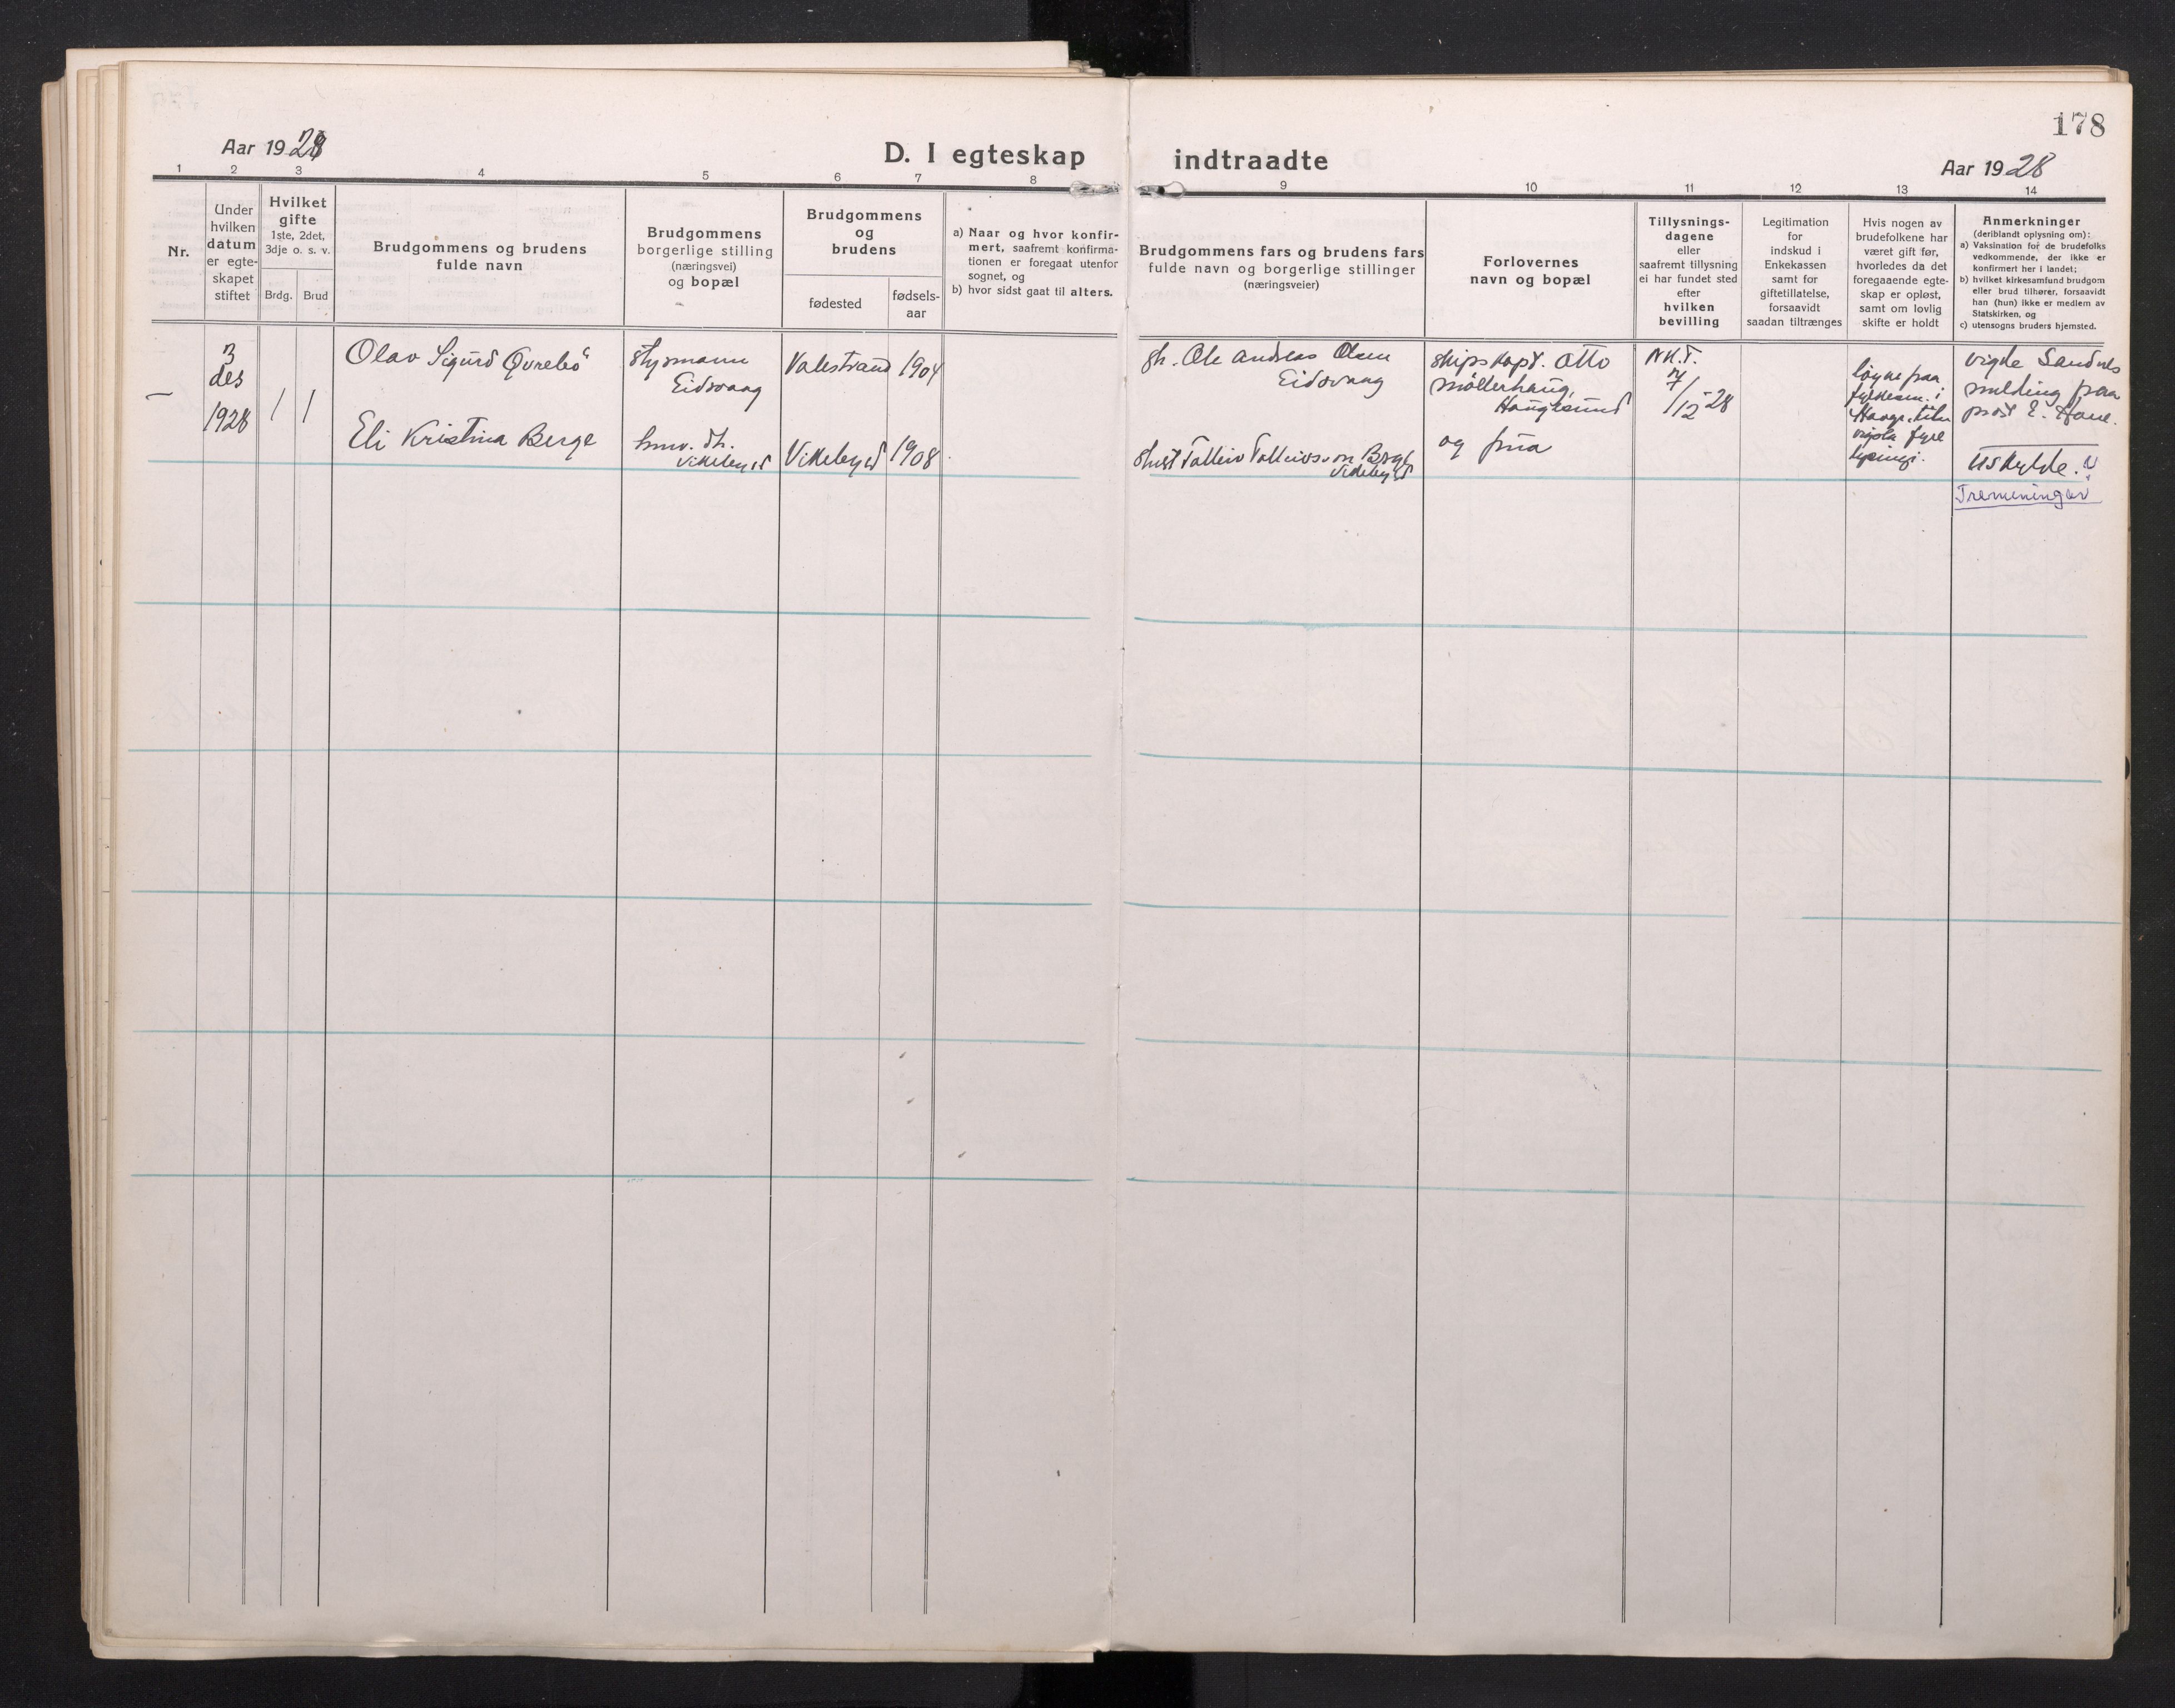 178
Aar 1928
D. I egteskap indtraadte
Aar 1928
1 2 3 4 5 6 7 8 9 10 11 12 13 14
Nr.
Under
hvilken
datum
er egte-
skapet
stiftet
Hvilket
gifte
1ste, 2det,
3dje o. s. v.
Brdg.
Brud
Brudgommens og brudens
fulde navn
Brudgommens
borgerlige stilling
(næringsvei)
og bopæl
Brudgommens
og
brudens
fødested
fødsels-
aar
a) Naar og hvor konfir-
mert, saafremt konfirma-
tionen er foregaat utenfor
sognet, og
b) hvor sidst gaat til alters.
Brudgommens fars og brudens fars
fulde navn og borgerlige stillinger
(næringsveier)
Forlovernes
navn og bopæl
Tillysnings-
dagene
eller
saafremt tillysning
ei har fundet sted
efter
hvilken
bevilling
Legitimation
for
indskud i
Enkekassen
samt for
giftetillatelse,
forsaavidt
saadan tiltrænges
Hvis nogen av
brudefolkene har
været gift før,
hvorledes da det
foregaaende egte-
skap er opløst,
samt om lovlig
skifte er holdt
Anmerkninger
(deriblandt oplysning om):
a) Vaksination for de brudefolks
vedkommende, der ikke er
konfirmert her i landet;
b) hvilket kirkesamfund brudgom
eller brud tilhører, forsaavidt
han (hun) ikke er medlem av
Statskirken, og
c) utensogns bruders hjemsted.
—
3
des
1928
1 1
Olav Sigurd Øvrebö
Eli Kristina Berge
styrmann
Eidsvaag
Vikebygd
Valestrand 1904
Vikebygd 1908
Ole Andreas Olsen
Eidsvaag
Tolleiv Tolleivson Berge
Vikebygd
skipskapt. Otto
Möllerhaug,
Haugesund
og frua
N.K.T.
7/12-28
løyve paa
fylkesm. i
vigsla fyre
lysingi.
vigde Sandnes
melding paa
prost E. Hove.
Uskylde.
Tremeninger